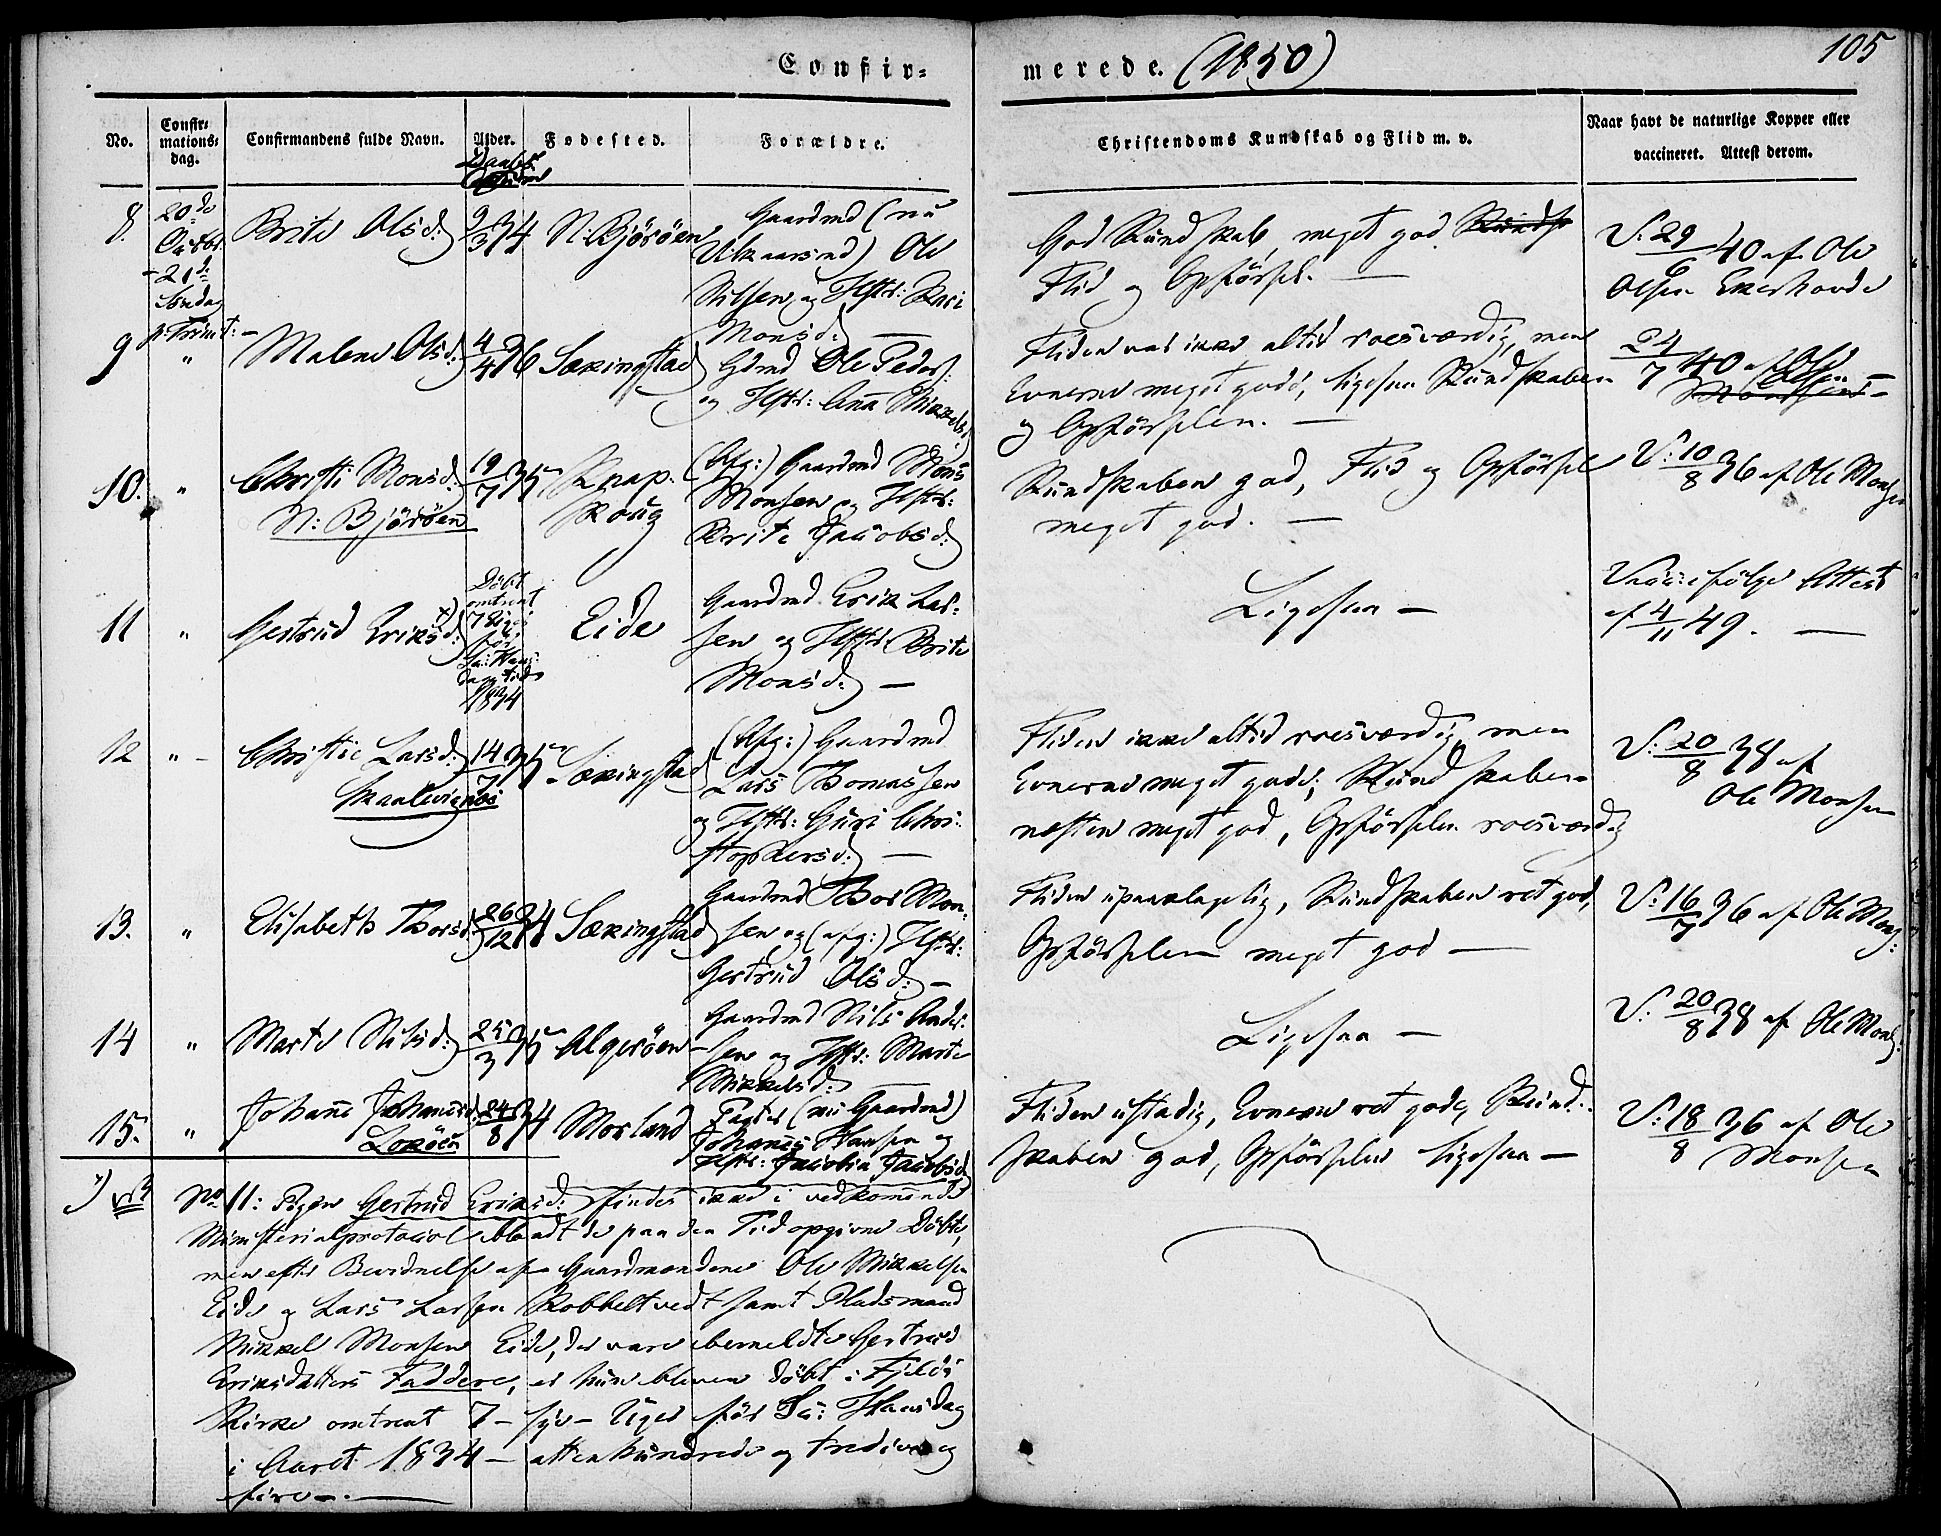 105
Confir=
merede. (1850)
No.
Confir=
mations=
dag.
Confirmandens fulde Navn.
Alder.
Daabs
Fødested.
Forældre.
Christendoms Kundskab og Flid m. v.
Naar havt de naturlige Kopper eller
vaccineret. Attest derom.
8.
20de
Octbr.
-21de
Søndag
p: Trinit:
Brite Olsd:
9/3 34
N: Björöen
Gaardmd (nu
Vilkaarsmd) Ole
Nilsen og Hstr: Kari
Monsd: —
God Kundskab, meget god Kundsk
Flid og Opförsel. —
V: 29/6 40 af Ole
Olsen Ekerhovde
9
"
Malene Olsd:
4/4 36
Sækingstad
Gdmd Ole Peders:
og Hstr: Anna Mikkelsd
Fliden var ikke altid roesværdig, men
Evnerne meget gode, ligesaa Kundskaben
og Opförselen. —
24/7 40 af Ole
Olsen —
Monsen
10.
"
Christi Monsd:
N: Björöen
19/7 35
Knap-
skoug
(Afg:) Gaardmd Mons
Monsen og Hstr:
Brite Jacobsd:
Kundskaben god, Flid og Opförsel
meget god. —
V: 10/8 36 af Ole Monsen
11
"
Gertrud Eriksd: x)
Döbt
omtrent
7 Uger
för
St: Hans
dag Aar
1834
Eide
Gaardmd Erik Lar-
sen og Hstr: Brite
Monsd: —
Ligesaa —
Vacc: ifölge Attest
af 4/11 49. —
12
" -
Christie Larsd:
Skaalevignæs
14/7 35
Sækingstad
(Afg:) Gaardmd
Lars Thomassen
og Hstr: Guri Chri-
stophersd: —
Fliden ikke altid roesværdig, men
Evnerne meget gode; Kundskaben
næsten meget god, Opförselen roesværdig
V: 20/8 38 af
Ole Monsen
13.
"
Elisabeth Thorsd:
26/12 34
Sækingstad
Gaardmd Thor Mon-
sen og (afg:) Hstr:
Gertrud Olsd: —
Fliden upaaklagelig, Kundskaben ret god,
Opförselen meget god —
V: 16/7 36 af Ole Mons:
14
"
Marte Nilsd:
25/3 35
Algeröen
Gaardmd Nils Ander-
sen og Hstr: Marte
Mikkelsd: —
Ligesaa —
V: 20/8 38 af Ole Mons:
15.
"
Johanne Johannesd:
Loköen
24/8 34
Morland
Pagter (nu Gaardmd)
Johannes Hansen og
Hstr: Jacobia Jacobsd
Fliden ustadig, Evnerne ret gode, Kund-
skaben god, Opförselen ligesaa —
V: 18/8 36 af Ole
Monsen
x) No 11: Pigen Gertrud Eriksd: findes ikke i vedkommende
Ministerialprotocol iblandt de paa den Tid opgivne Döbte,
men efter Bevidnelse af Gaardmændene Ole Mikkelsen
Eide og Lars Larsen Kobbeltvedt samt Pladsmand
Mikkel Monsen Eide, der vare bemeldte Gertrud
Eriksdatters Faddere, er hun bleven döbt i Fjelds
Kirke omtrent 7 - syv - Uger för St: Hansdag
i Aaret 1834 - attenhundrede og tredive og
fire -. —